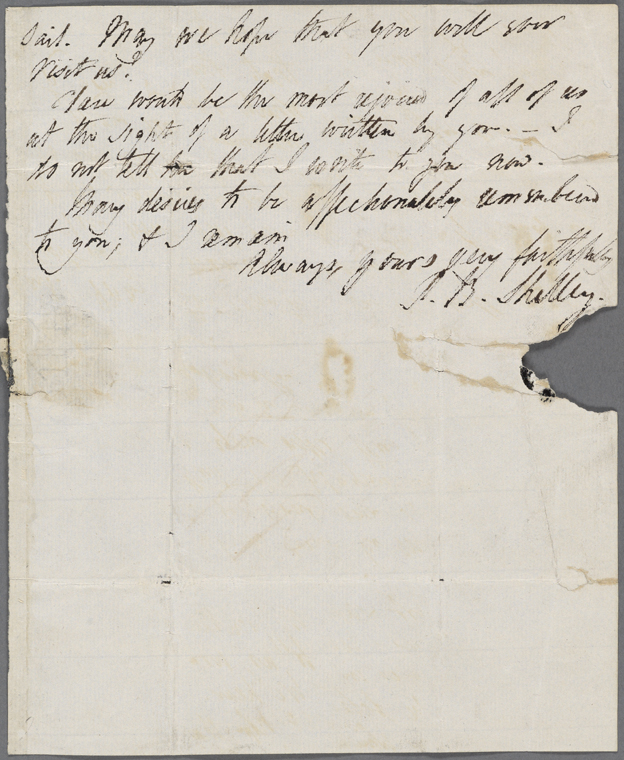 sail. May we hope that you will ever
visit us?
Clare would be the most rejoiced of all of us
at the sight of a letter written by you. — I
do not tell her that I write to you now.
Mary desires to be affectionately remembered
to you; & I remain
Always yours very faithfully
P. B. Shelley.